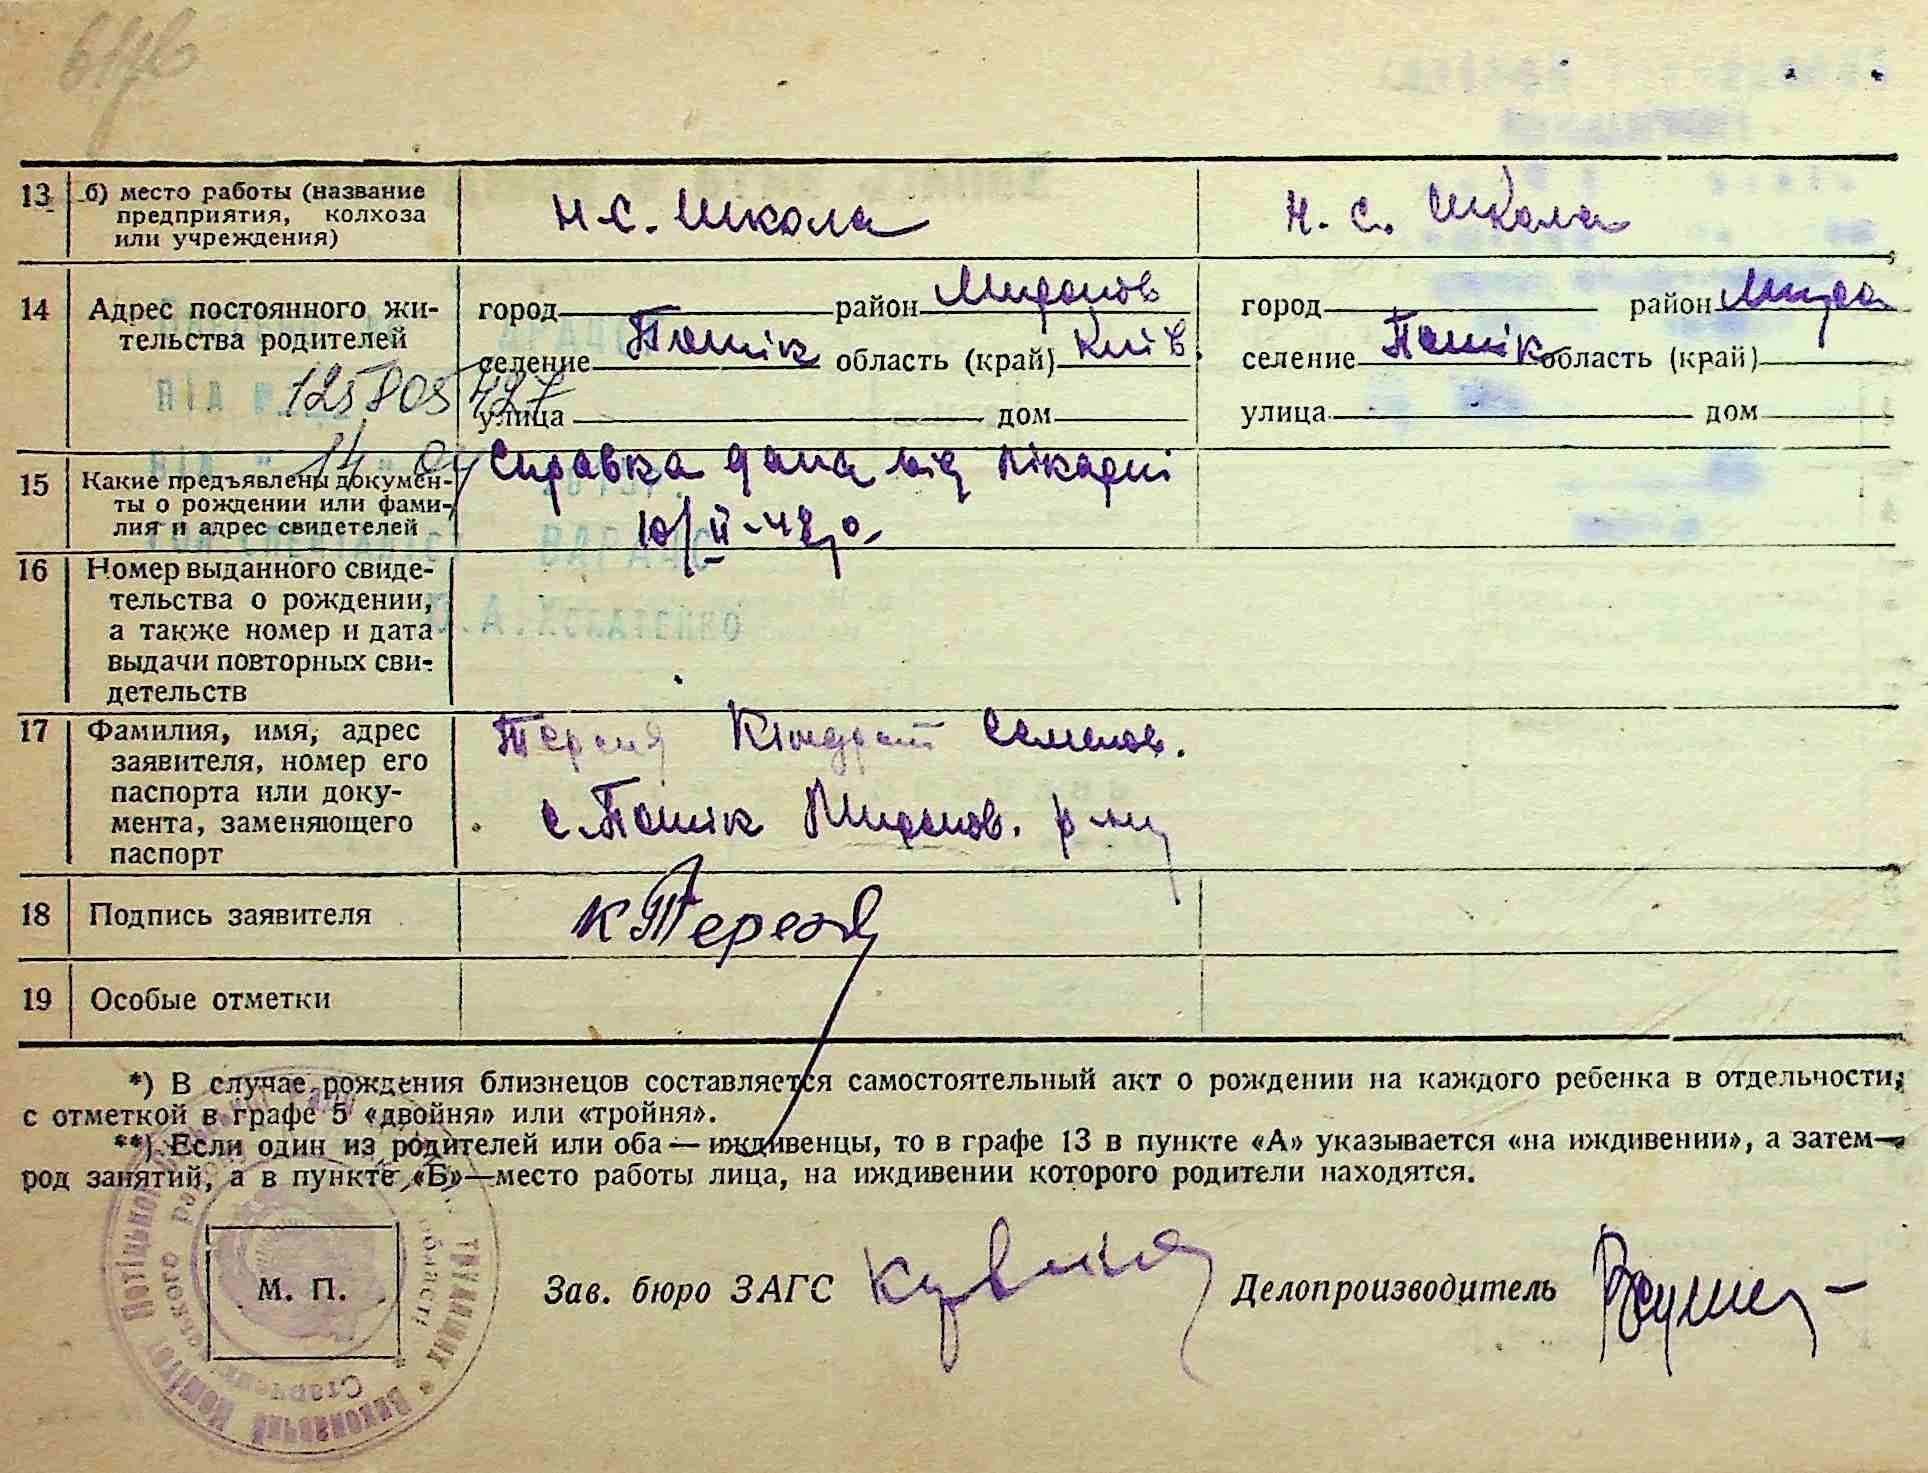 13 б) место работы (название предприятия, колхоза или учреждения) Н-С. Школа Н. С. Школа
14 Адрес постоянного жи-
тельства родителей
город район Миронов
селение Потік область (край) Київ.
улица дом
город район Миро
селение Потік область (край)
улица дом
125805 427
14 04
15 Какие предъявлены докумен-
ты о рождении или фами-
лия и адрес свидетелей
Справка дана від лікарні
10/II-48 р.
16 Номер выданного свиде-
тельства о рождении,
а также номер и дата
выдачи повторных сви-
детельств
17 Фамилия, имя, адрес
заявителя, номер его
паспорта или доку-
мента, заменяющего
паспорт
Кіндрат Семенов.
с. Потік Миронов. р-ну
18 Подпись заявителя К Терезя
19 Особые отметки
*) В случае рождения близнецов составляется самостоятельный акт о рождении на каждого ребенка в отдельности,
с отметкой в графе 5 «двойня» или «тройня».
**) Если один из родителей или оба — иждивенцы, то в графе 13 в пункте «А» указывается «на иждивении», а затем—
род занятий, а в пункте «Б»—место работы лица, на иждивении которого родители находятся.
М. П.
Зав. бюро ЗАГС Делопроизводитель
Виконавчий Комітет Потіцької трудящих області